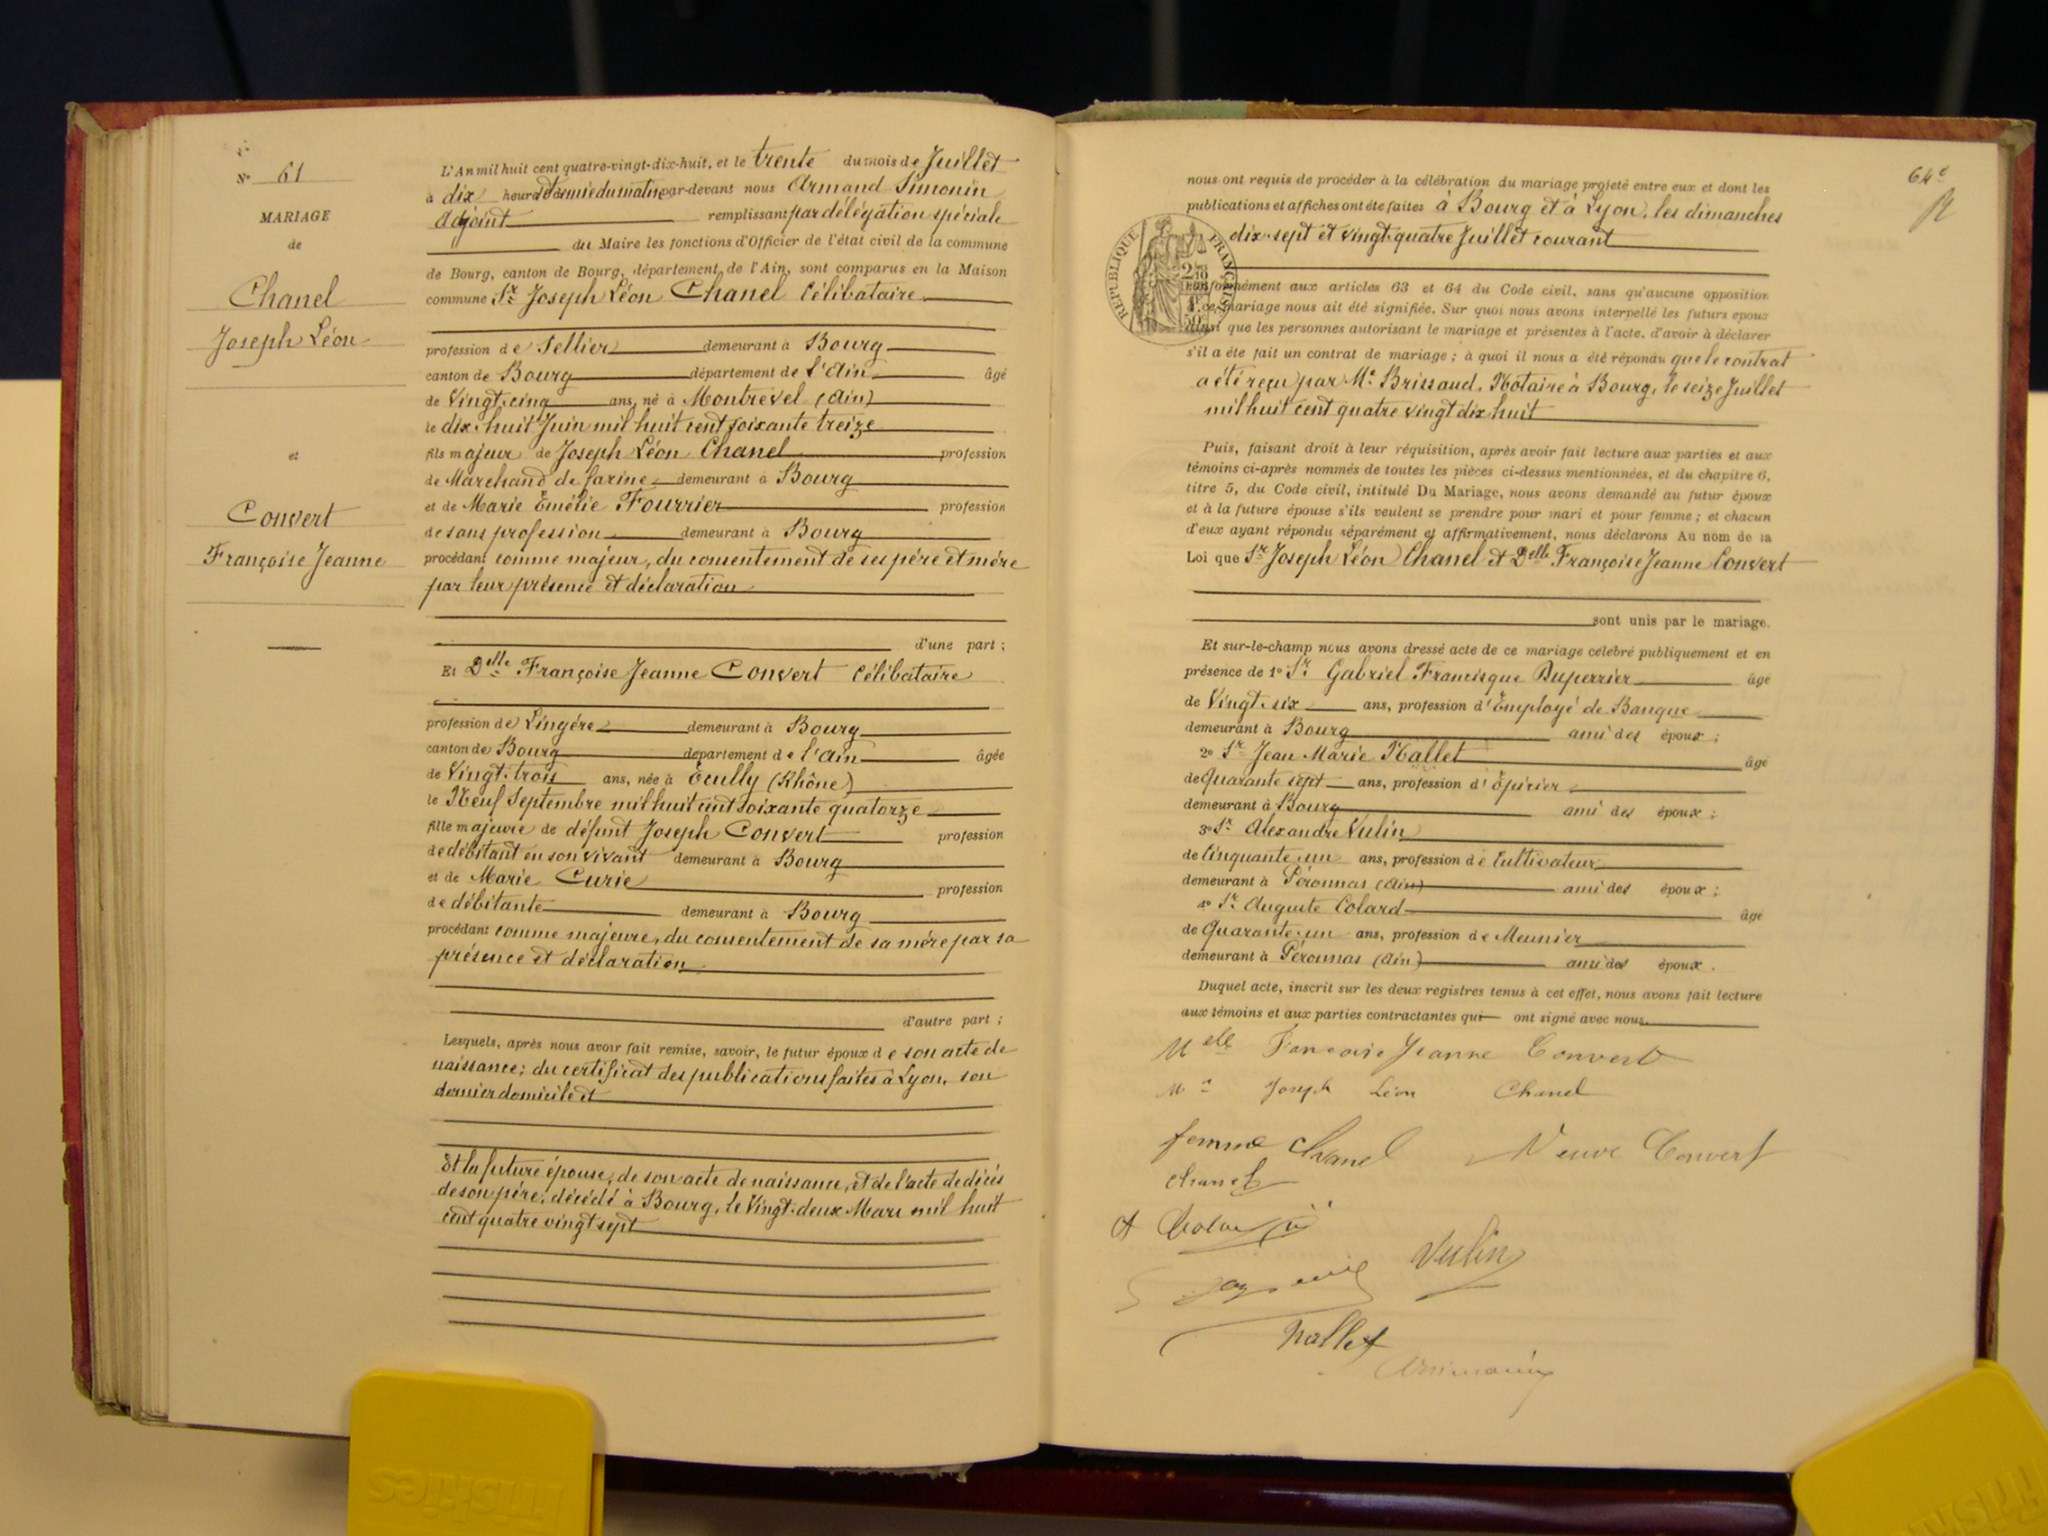 N° 61
MARIAGE
de
Chanel
Joseph Léon
et
Convert
Françoise Jeanne
L'An mil huit cent quatre-vingt-dix-huit, et le trente du mois de Juillet
à dix heures et demie du matin par-devant nous Armand Simonin
Adjoint remplissant par délégation spéciale
du Maire les fonctions d'Officier de l'état civil de la commune
de Bourg, canton de Bourg, département de l'Ain, sont comparus en la Maison
commune Sr Joseph Léon Chanel Célibataire
profession de Sellier demeurant à Bourg
canton de Bourg département de l'Ain âgé
de Vingt-cinq ans, né à Montrevel (Ain)
le dix-huit Juin mil huit cent soixante treize
fils majeur de Joseph Léon Chanel profession
de Marchand de farine demeurant à Bourg
et de Marie Emélie Fourrier profession
de sans profession demeurant à Bourg
procédant comme majeur, du consentement de ses père et mère
par leur présence et déclaration
d'une part ;
Et Delle Françoise Jeanne Convert Célibataire
profession de Lingère demeurant à Bourg
canton de Bourg département de l'Ain âgée
de Vingt-trois ans, née à Écully (Rhône)
le Neuf Septembre mil huit cent soixante quatorze
fille majeure de défunt Joseph Convert profession
de débitant en son vivant demeurant à Bourg
et de Marie Curie profession
de débitante demeurant à Bourg
procédant comme majeure, du consentement de sa mère par sa
présence et déclaration
d'autre part ;
Lesquels, après nous avoir fait remise, savoir, le futur époux de son acte de
naissance; du certificat des publications faites à Lyon, son
dernier domicile et
Et la future épouse, de son acte de naissance, et de l'acte de décès
de son père, décédé à Bourg, le Vingt-deux Mars mil huit
cent quatre vingt sept
64e
nous ont requis de procéder à la célébration du mariage projeté entre eux et dont les
publications et affiches ont été faites à Bourg et à Lyon, les dimanches
dix-sept et vingt-quatre Juillet courant
RÉPUBLIQUE FRANÇAISE
conformément aux articles 63 et 64 du Code civil, sans qu'aucune opposition
à ce mariage nous ait été signifiée. Sur quoi nous avons interpellé les futurs époux
ainsi que les personnes autorisant le mariage et présentes à l'acte, d'avoir à déclarer
s'il a été fait un contrat de mariage ; à quoi il nous a été répondu que le contrat
a été reçu par Me Brissaud, Notaire à Bourg, le seize Juillet
mil huit cent quatre vingt dix huit
Puis, faisant droit à leur réquisition, après avoir fait lecture aux parties et aux
témoins ci-après nommés de toutes les pièces ci-dessus mentionnées, et du chapitre 6,
titre 5, du Code civil, intitulé Du Mariage, nous avons demandé au futur époux
et à la future épouse s'ils veulent se prendre pour mari et pour femme ; et chacun
d'eux ayant répondu séparément et affirmativement, nous déclarons Au nom de la
Loi que Sr Joseph Léon Chanel et Delle Françoise Jeanne Convert
sont unis par le mariage.
Et sur-le-champ nous avons dressé acte de ce mariage célébré publiquement et en
présence de 1° Sr Gabriel Francisque Duperrier âgé
de Vingt-six ans, profession d'Employé de Banque
demeurant à Bourg ami des époux ;
2° Sr Jean Marie Nallet âgé
de Quarante sept ans, profession d'Épicier
demeurant à Bourg ami des époux ;
3° Sr Alexandre Vulin
de Cinquante-un ans, profession de Cultivateur
demeurant à Péronnas (Ain) ami des époux ;
4° Sr Auguste Colard âgé
de Quarante-un ans, profession de Meunier
demeurant à Péronnas (Ain) ami des époux.
Duquel acte, inscrit sur les deux registres tenus à cet effet, nous avons fait lecture
aux témoins et aux parties contractantes qui ont signé avec nous.
Melle Françoise Jeanne Convert
Mr Joseph Léon Chanel
femme Chanel Veuve Convert
Chanel
Vulin
Nallet